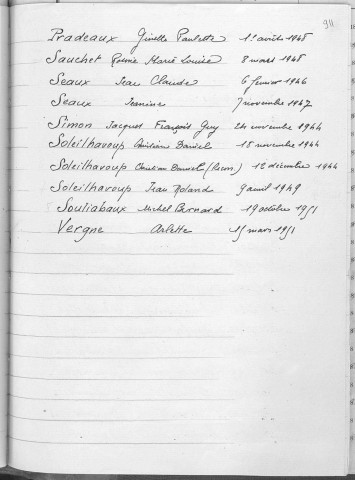 911
Pradeaux Ginette Paulette 1er avril 1948
Sauchet Marie Louise 8 mars 1948
Seaux Jean Claude 6 février 1946
Seaux Janine 7 novembre 1947
Simon Jacques François Guy 24 novembre 1944
Soleilhavoup Christian Daniel 18 novembre 1944
Soleilhavoup Christian Daniel (recon.) 12 décembre 1944
Soleilhavoup Jean Roland 9 avril 1949
Souliabaux Michel Bernard 19 octobre 1951
Vergne Arlette 15 mars 1951